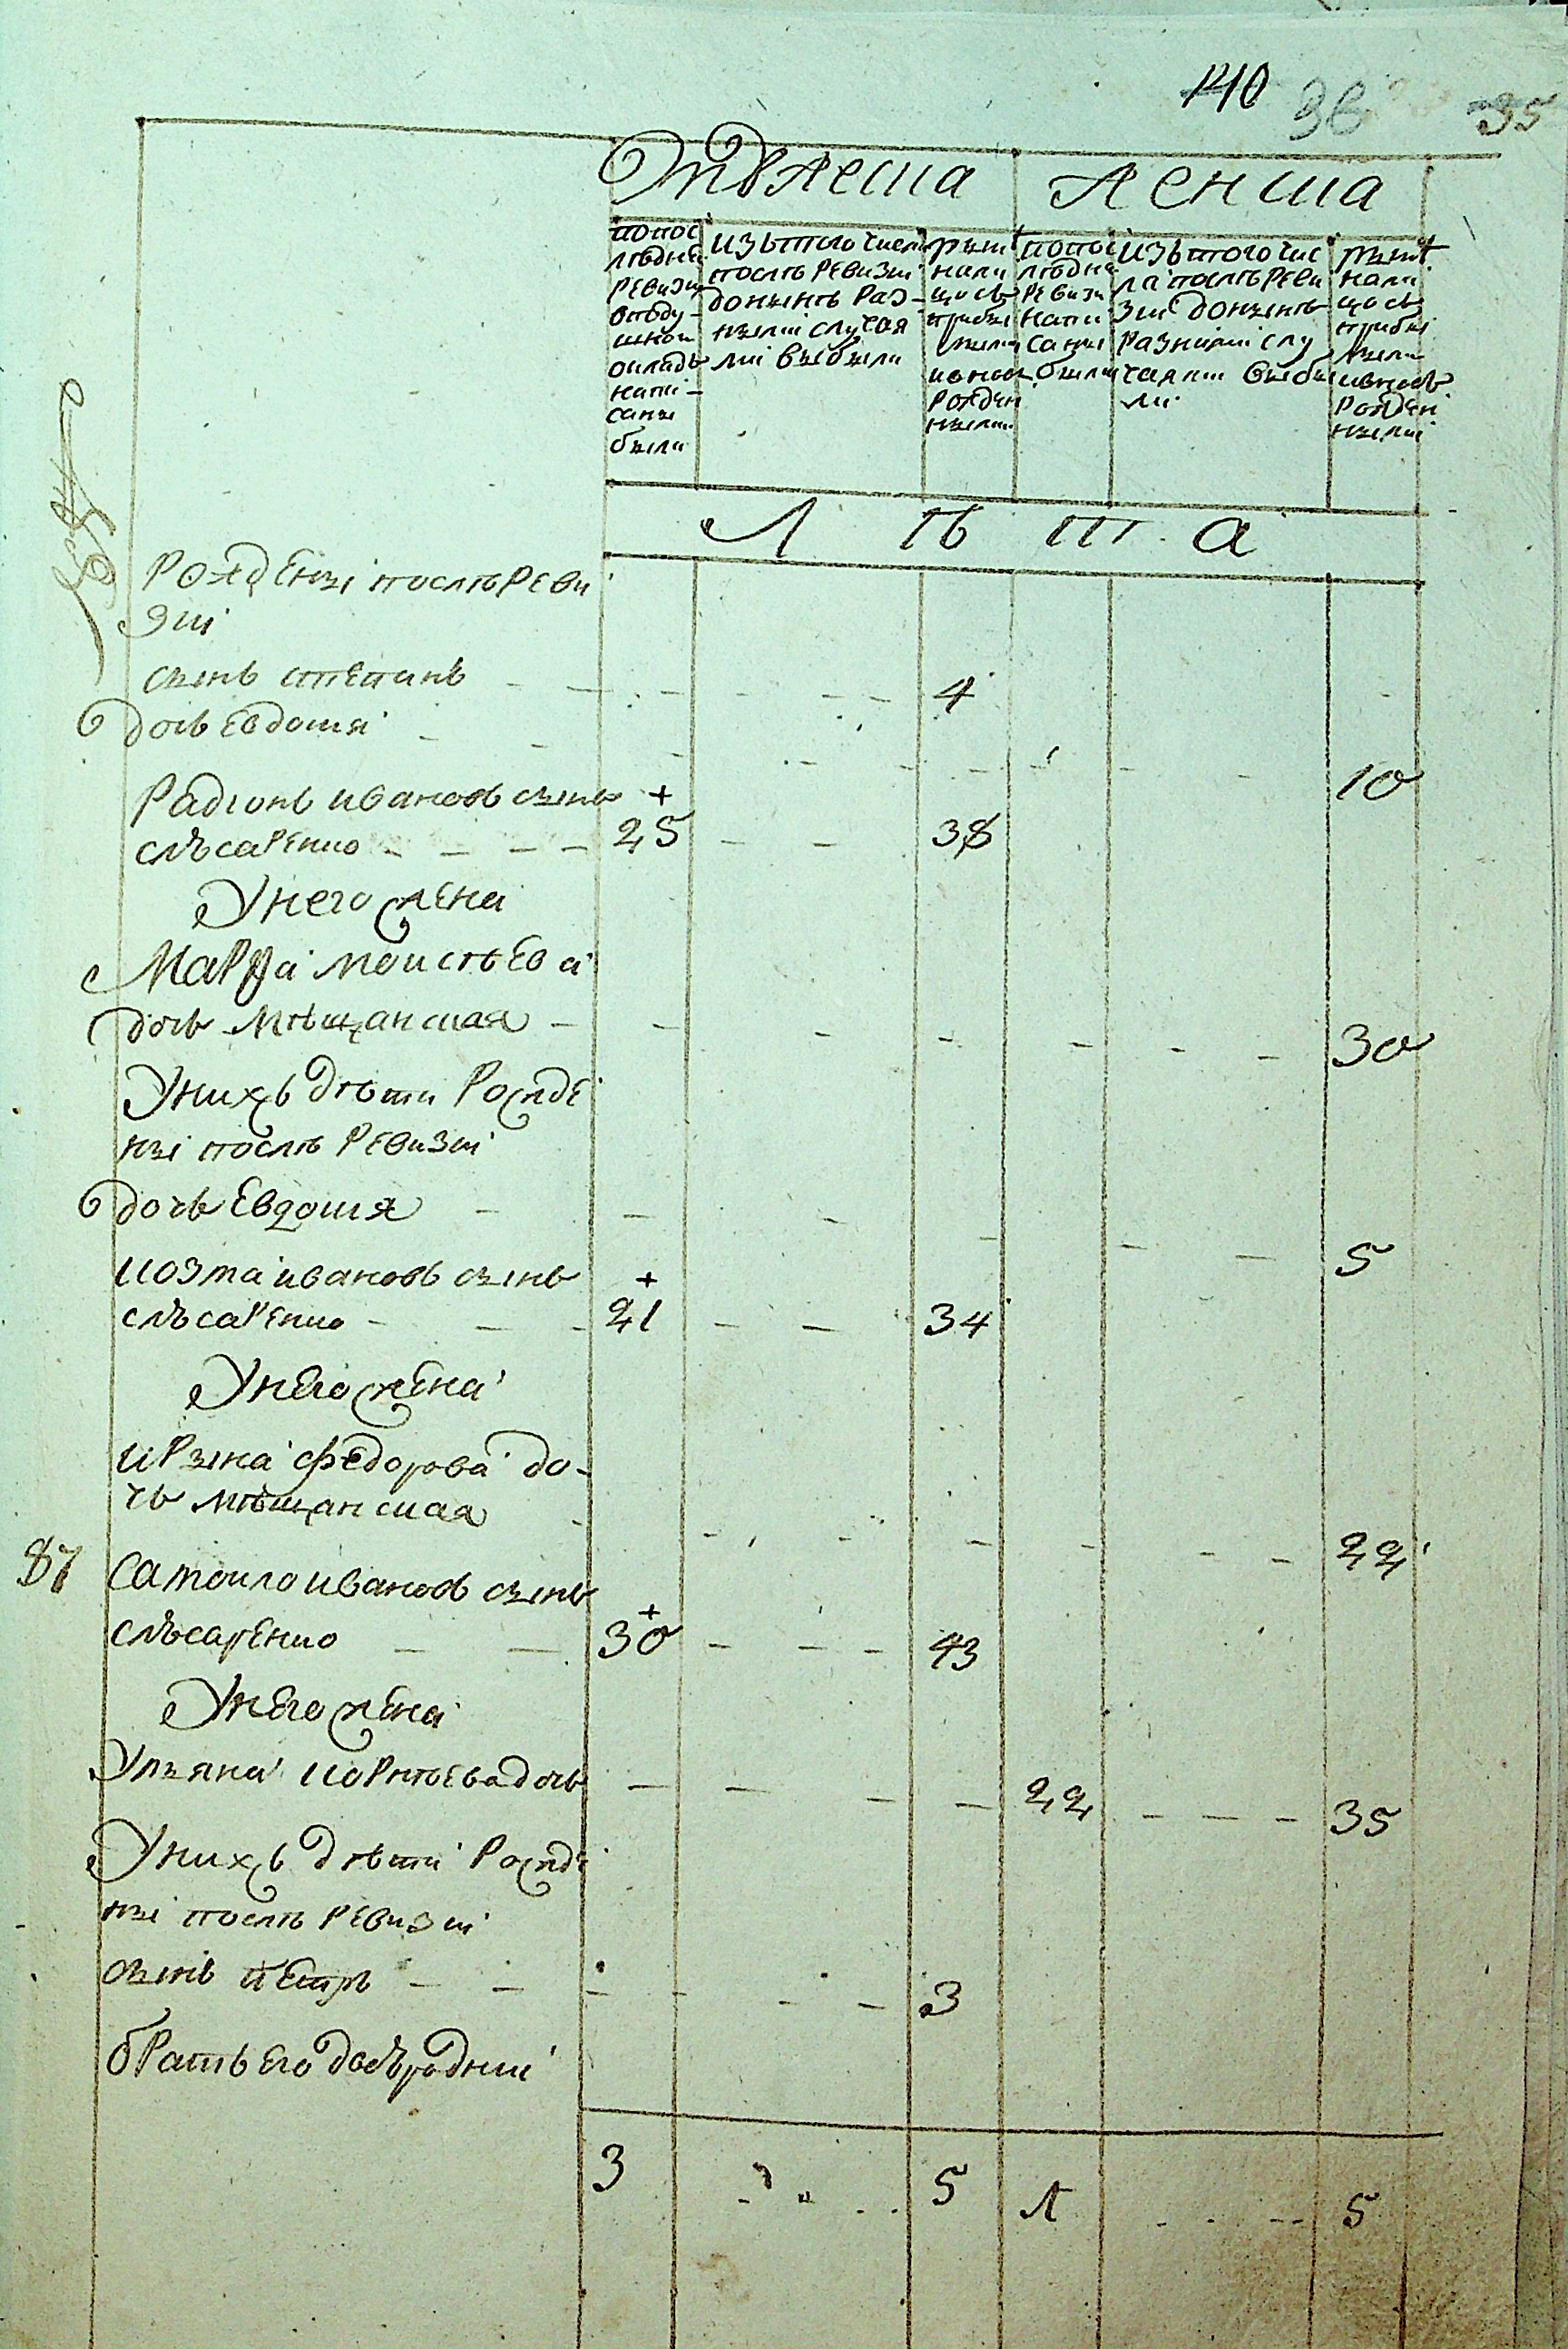 140 36 35
Мужеска Женска
попос
лѣдней
ревизи
вподу-
шной
окладъ
напи-
саны
были
изътого числа
послѣ ревизіи
донынѣ раз-
ными случая
ми выбыли
рын
нали
цосъ
прибы
лыми
ивновь
рожден
ными
попос
лѣдне
ревизи
напи
саны
были
изътого чис
ла послѣ реви
зіи донынѣ
разными слу
чаями выбы
ли
нали
цосъ
прибы
лыми
ивновь
рожден
ными
Л ѣ т а
рождены послѣ реви
зіи
сынъ степанъ 4
дочь Евдокия 10
+
Радионъ ивановъ сынъ
слѣсаренко 25 38
Унего жена
Марфа моисѣева
дочь мѣщанская 30
Унихъ дѣти рожде
ны послѣ ревизіи
дочь Евдокия 5
+
козма ивановъ сынъ
слѣсаренко 21 34
Унего жена
ирына федорова до-
чь мѣщанская 22
87 Самойло ивановъ сынъ
+
слѣсаренко 30 43
Унего жена
Ульяна корнѣева дочь 22 35
Унихъ дѣти рожде
ны послѣ ревизіи
сынъ петръ 3
братъ его двоюродный
3 5 1 5